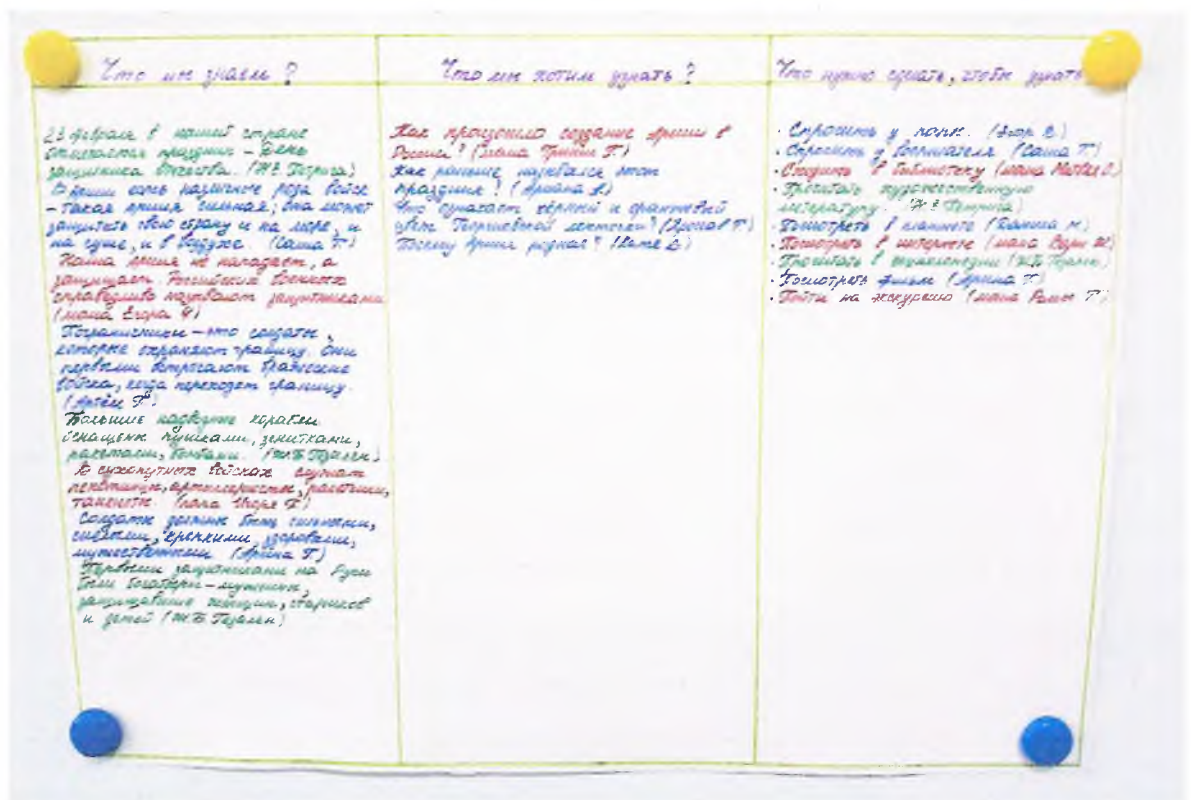 Что мы знаем?
23 февраля в нашей стране
отмечается праздник – День
защитника Отечества.
В армии есть различные рода войск
– такая армия сильная; она может
защитить свою страну и на море, и
на суше, и в воздухе. (Саша Г)
Наша армия не нападает, а
защищает. Российских военных
справедливо называют защитниками
(мама Егора Ф)
Пограничники – это солдаты,
которые охраняют границу. Они
первыми встречают вражеские
войска, когда переходят границу.
(Артём Г)
Большие надводные корабли
оснащены пушками, зенитками,
ракетами, бомбами.
В сухопутных войсках служат
пехотинцы, артиллеристы, ракетчики,
танкисты. (папа Игоря Г)
Солдаты должны быть сильными,
смелыми, крепкими, здоровыми,
мужественными (Арина Г)
Первыми защитниками на Руси
были богатыри – мужчины,
защищавшие женщин, стариков
и детей
Что мы хотим узнать?
Как произошло создание Армии в
России? (мама
Как раньше назывался этот
праздник?
Что означает чёрный и оранжевый
цвет Георгиевской ленточки?
Почему Армия родная?
Что нужно сделать, чтобы узнать
· Спросить у пап. (Егор
· Спросить у воспитателя (Саша Г)
· Сходить в библиотеку (мама
· Прочитать художественную
литературу
· Посмотреть в
· Посмотреть в интернете (мама
· Прочитать в энциклопедии
· Посмотреть фильм (Арина Г)
· Пойти на экскурсию (мама Ромы Г)